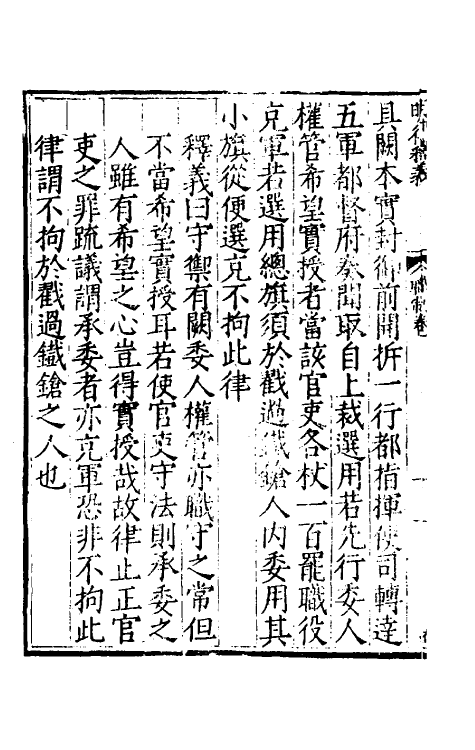 具闕本實封御前開拆一行都指揮使司轉達
五軍都督府奏聞取自上裁選用若先行委人
權管希望實授者當該官吏各杖一百罷職役
充軍若選用總旗須於戳過鐵鎗人內委用其
小旗從便選充不拘此律
釋義曰守禦有闕委人權管亦職守之常但
不當希望實授耳若使官吏守法則承委之
人雖有希望之心豈得實授哉故律止正官
吏之罪疏議謂承委者亦充軍恐非不拘此
律謂不拘於戳過鐵鎗之人也